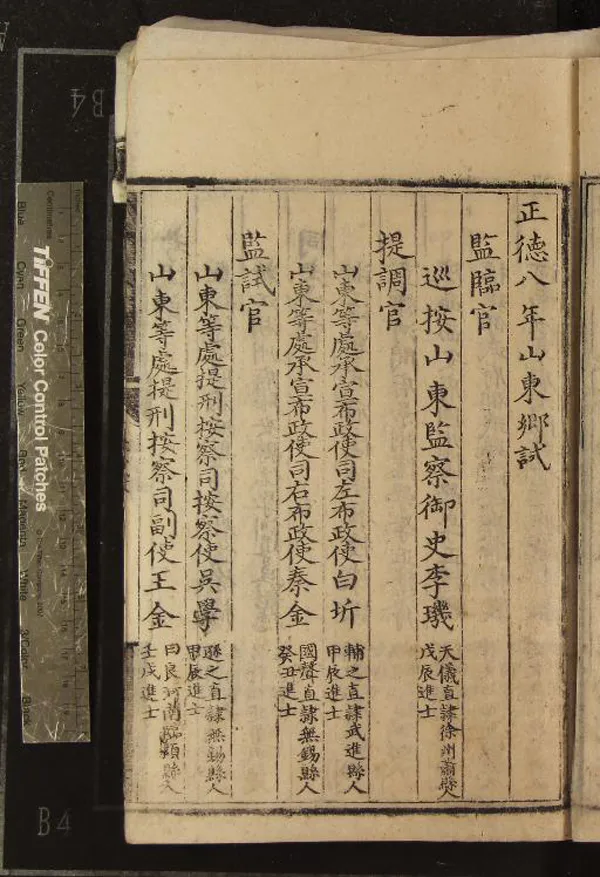 正德八年山東鄉試
監臨官
巡按山東監察御史李璣
天儀直隸徐州蕭縣人
戊辰進士
提調官
山東等處承宣布政使司左布政使白圻
輔之直隸武進縣人
甲辰進士
山東等處承宣布政使司右布政使秦金
國聲直隸無錫縣人
癸丑進士
監試官
山東等處提刑按察司按察使吳學
遜之直隸無錫縣人
甲辰進士
山東等處提刑按察司副使王金
曰良河南臨潁縣人
壬戌進士
B4
B4
TIFFEN Color Control Patches
Blue
Cyan
Green
Yellow
Red
Magenta
White
3/Color
Black